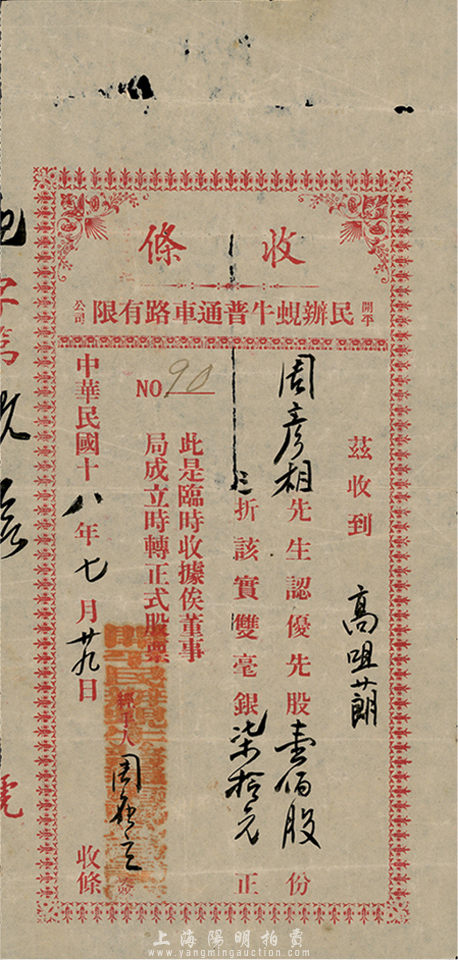 收條
開平民辦蜆牛普通車路有限公司
茲收到 高咀蓢
周彥相先生認優先股壹佰股份
三折該實雙毫銀柒拾元正
此是臨時收據俟董事
局成立時轉正式股票
NO 90
中華民國十八年七月廿九日
經手人 周 收條
上海陽明拍賣
www.yangmingauction.com